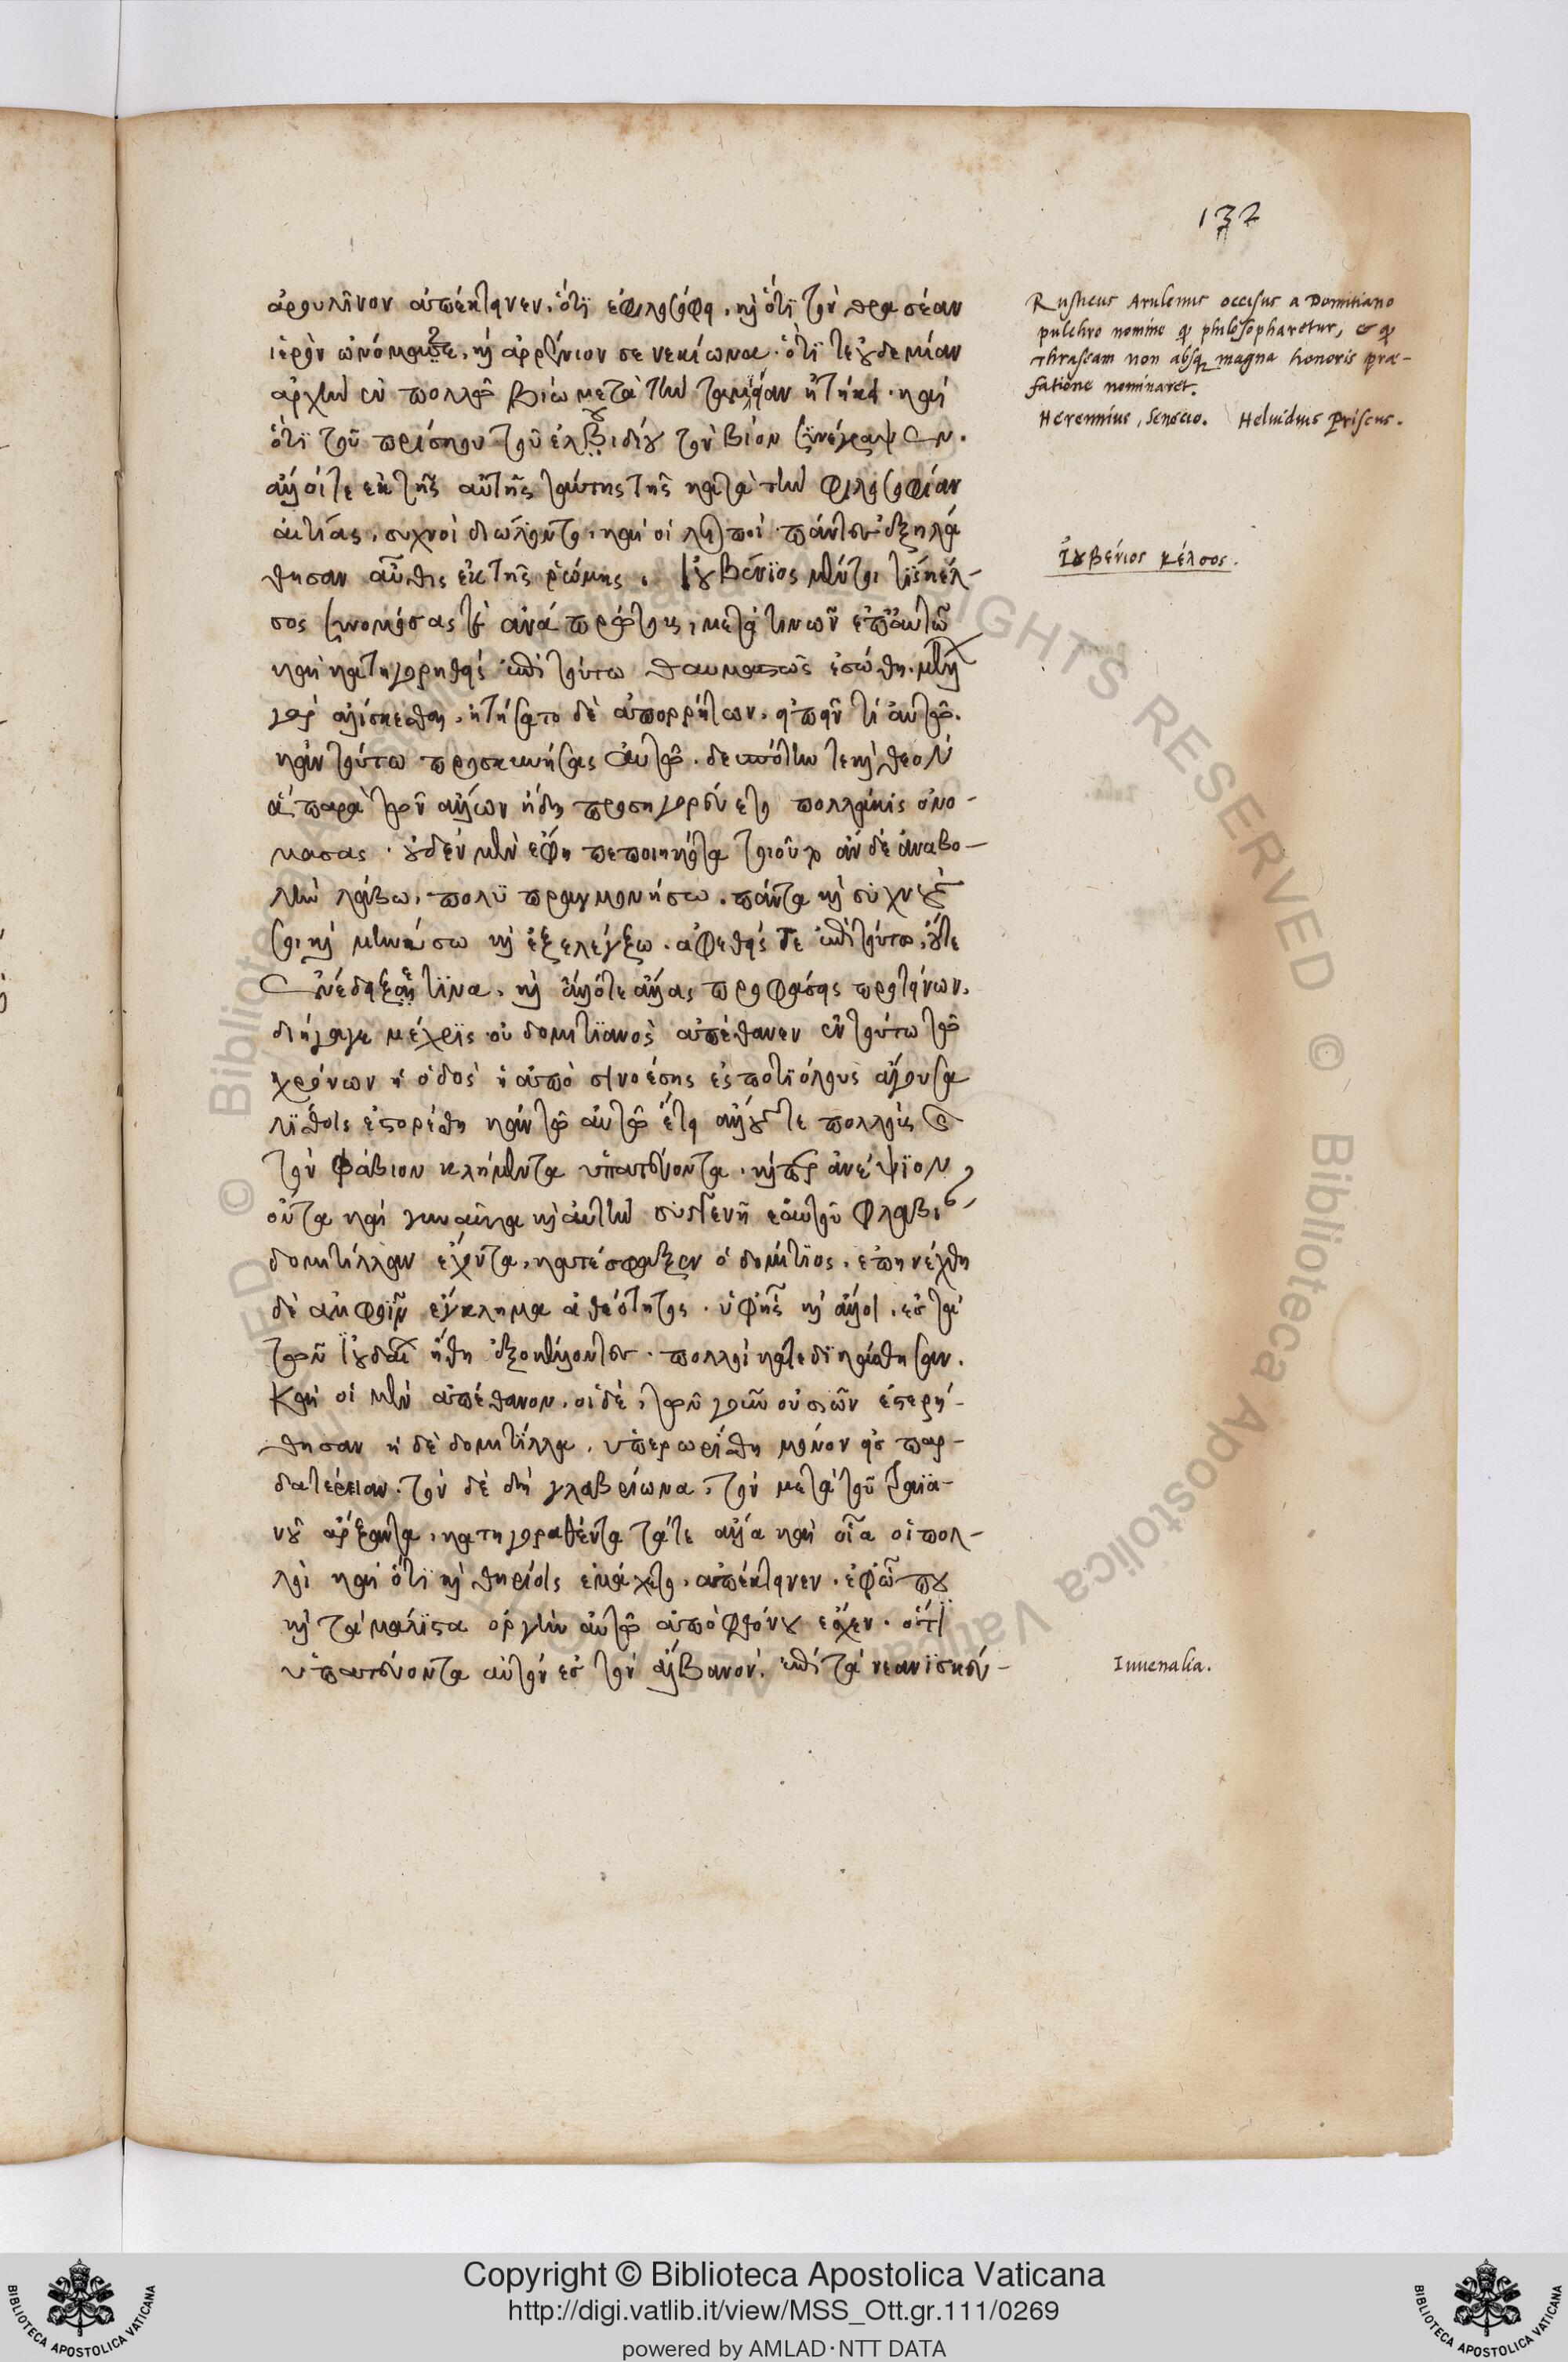 132
ἀρουλῖνον ἀπέκτεινεν. ὅτϊ ἐφιλοσόφει. κὶ ὅτϊ τὸν θρασέαν
ἱερὸν ὠνόμαζε. κὶ ἀρρένιον σενεκίωνα. ὅτϊ τε οὐδεμίαν
ἀρχὴν ἐν πολλῶ βίω μετὰ τὴν ταμιείαν ἤτησε. καὶ
ὅτϊ τοῦ πρίσκου τοῦ ἐλβιδίου τὸν βίον συνέγραψεν.
ἄλλοί τε ἐκ τῆς αὐτῆς ταύτης τῆς κατὰ τὴν φιλοσοφίαν
αἰτίας. συχνοὶ διώλοντο. καὶ οἱ λοιποὶ πάντες ἐξηλά
θησαν αὖθις ἐκ τῆς ῥώμης. ἰουβένϊος μέντοι τϊς κέλ-
σος συνομόσας τε ἀνὰ πρώτους, μετά τινων ἐπ αὐτῶ
καὶ κατηγορηθεὶς ἐπὶ τούτω θαυμαστῶς ἐσώθη. μέλλων
γὰρ ἁλίσκεσθαι. ἠτήσατο δὲ ἀπορρήτων. εἰπεῖν τί αὐτῶ.
κἀν τούτω προσκυνήσας αὐτῶ. δεσπότην τε κὶ θεὸν
ἃ παρὰ τῶν ἄλλων ἤδη προσηγορεύετο πολλάκις ὀνο-
μασας. οὐδὲν μὲν ἔφη πεποιηκέναι τοιοῦτο ἂν δὲ ἀναβο-
λὴν λάβω. πολϋπραγμονήσω. πάντα κὶ συχνούς
σοι κὶ μηνύσω κὶ ἐξελέγξω. ἀφεθεὶς δε ἐπὶ τούτω. οὔτε
ἐνέδειξέ τϊνα. κὶ ἄλλοτε ἄλλας προφάσεις προτείνων.
διήγαγε μέχρϊς οὗ δομιτϊανὸς ἀπέθανεν ἐν τούτω τῶ
χρόνων ἡ ὁδὸς ἡ ἀπὸ σινοέσης ἐς ποτϊόλους ἄγουσα
λϊθοις ἐστορέθη κἀν τῶ αὐτῶ ἔτει ἄλλους τε πολλοὺς κὶ
τὸν φάβιον κλήμεντα ὑπατεύοντα. καίπερ ἀνέψϊον
ὄντα καὶ γυναῖκα κὶ αὐτὴν συγγενῆ ἑαυτοῦ φλαβίαν
δομιτίλλαν ἔχοντα. κατέσφαξεν ὁ δομίτϊος. ἐπηνέχθη
δὲ ἀμφοῖν ἔγκλημα ἀθεότητος. ὑφῆς κὶ ἄλλοι. ἐς τὰ
τῶν ἰουδαί ἤθη ἐξοκέλλοντες. πολλοὶ κατεδϊκάσθησαν.
Καὶ οἱ μὲν ἀπέθανον. οἱ δὲ, τῶν γοῦν οὐσιῶν ἐστερή-
θησαν ἡ δὲ δομιτίλλα. ὑπερωρίσθη μόνον εἰς παρ-
δατέρειαν. τὸν δὲ δὴ γλαβρίωνα, τὸν μετὰ τοῦ τραϊα-
νοῦ ἄρξαντα, κατηγοραθέντα τά τε ἄλλα καὶ οἷα οἱ πολ-
λοὶ καὶ ὅτϊ κὶ θηρίοις ἐμάχετο. ἀπέκτεινεν. ἐφὧ που
κὶ τὰ μάλϊστα ὀργὴν αὐτῶ ἀπὸ φθόνου ἔσχεν. ὅτϊ
ὑπατεύοντα αὐτὸν ἐς τὸν ἀλβανὸν. ἐπὶ τὰ νεανϊσκεύ-
Rusticus Arulenus occisus a Domitiano
pulchro nomine quod philosopharetur, et quod
Thraseam non absque magna honoris præ-
fatione nominaret.
Herennius, Senecio. Heluidius Priscus.
Ἰουβένιος κέλσος.
Iuuenalia.
Copyright © Biblioteca Apostolica Vaticana
http://digi.vatlib.it/view/MSS_Ott.gr.111/0269
powered by AMLAD·NTT DATA
BIBLIOTECA APOSTOLICA VATICANA
BIBLIOTECA APOSTOLICA VATICANA